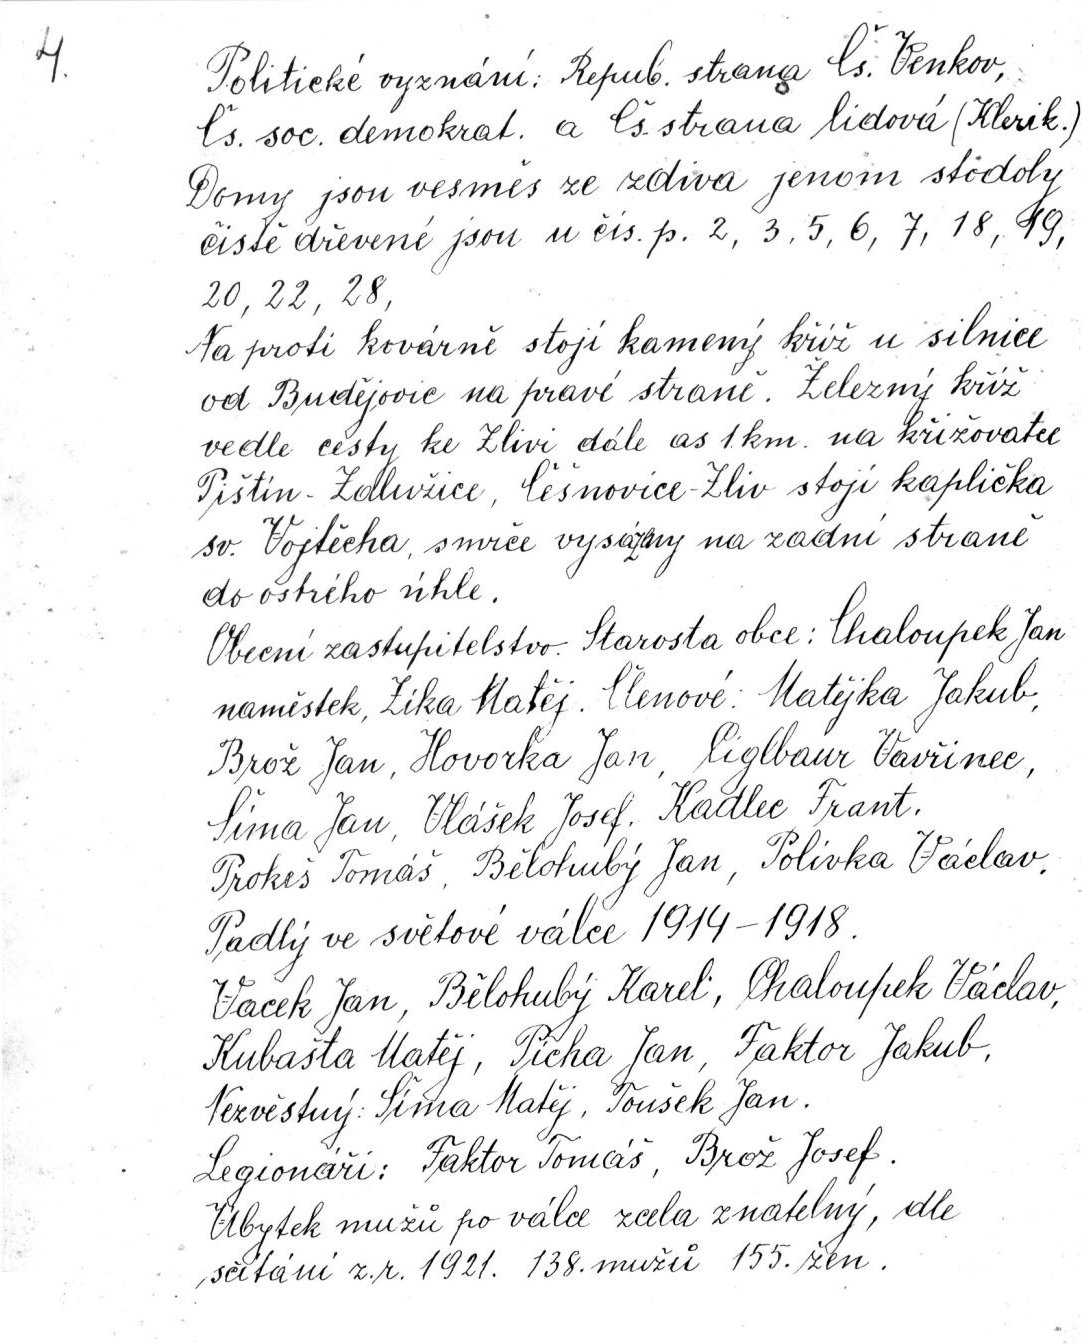 4.
Politické vyznání: Repub. strana Čs. Venkov,
Čs. soc. demokrat. a Čs. strana lidová (Klerik.)
Domy jsou vesměs ze zdiva jenom stodoly
čistě dřevené jsou u čís. p. 2, 3, 5, 6, 7, 18, 19,
20, 22, 28,
Na proti kovárně stojí kamený kříž u silnice
od Budějovic na pravé straně. Železný kříž
vedle cesty ke Zlivi dále as 1.km. na křižovatce
Pištín - Zdlužice, Češnovice-Zliv stojí kaplička
sv. Vojtěcha, smrče vysázeny na zadní straně
do ostrého úhle.
Obecní zastupitelstvo. Starosta obce: Chaloupek Jan
naměstek, Zíka Matěj. Členové: Matějka Jakub,
Brož Jan, Hovorka Jan, Ciglbaur Vavřinec,
Šíma Jan, Vlášek Josef. Kadlec Frant.
Prokeš Tomáš, Bělohubý Jan, Polívka Václav.
Padlý ve světové válce 1914-1918.
Vacek Jan, Bělohubý Karel, Chaloupek Václav,
Kubašta Matěj, Pícha Jan, Faktor Jakub,
Nezvěstný: Šíma Matěj, Toušek Jan.
Legionáři: Faktor Tomáš, Brož Josef.
Úbytek mužů po válce zcela znatelný, dle
sčítání z.r. 1921. 138. mužů 155. žen.